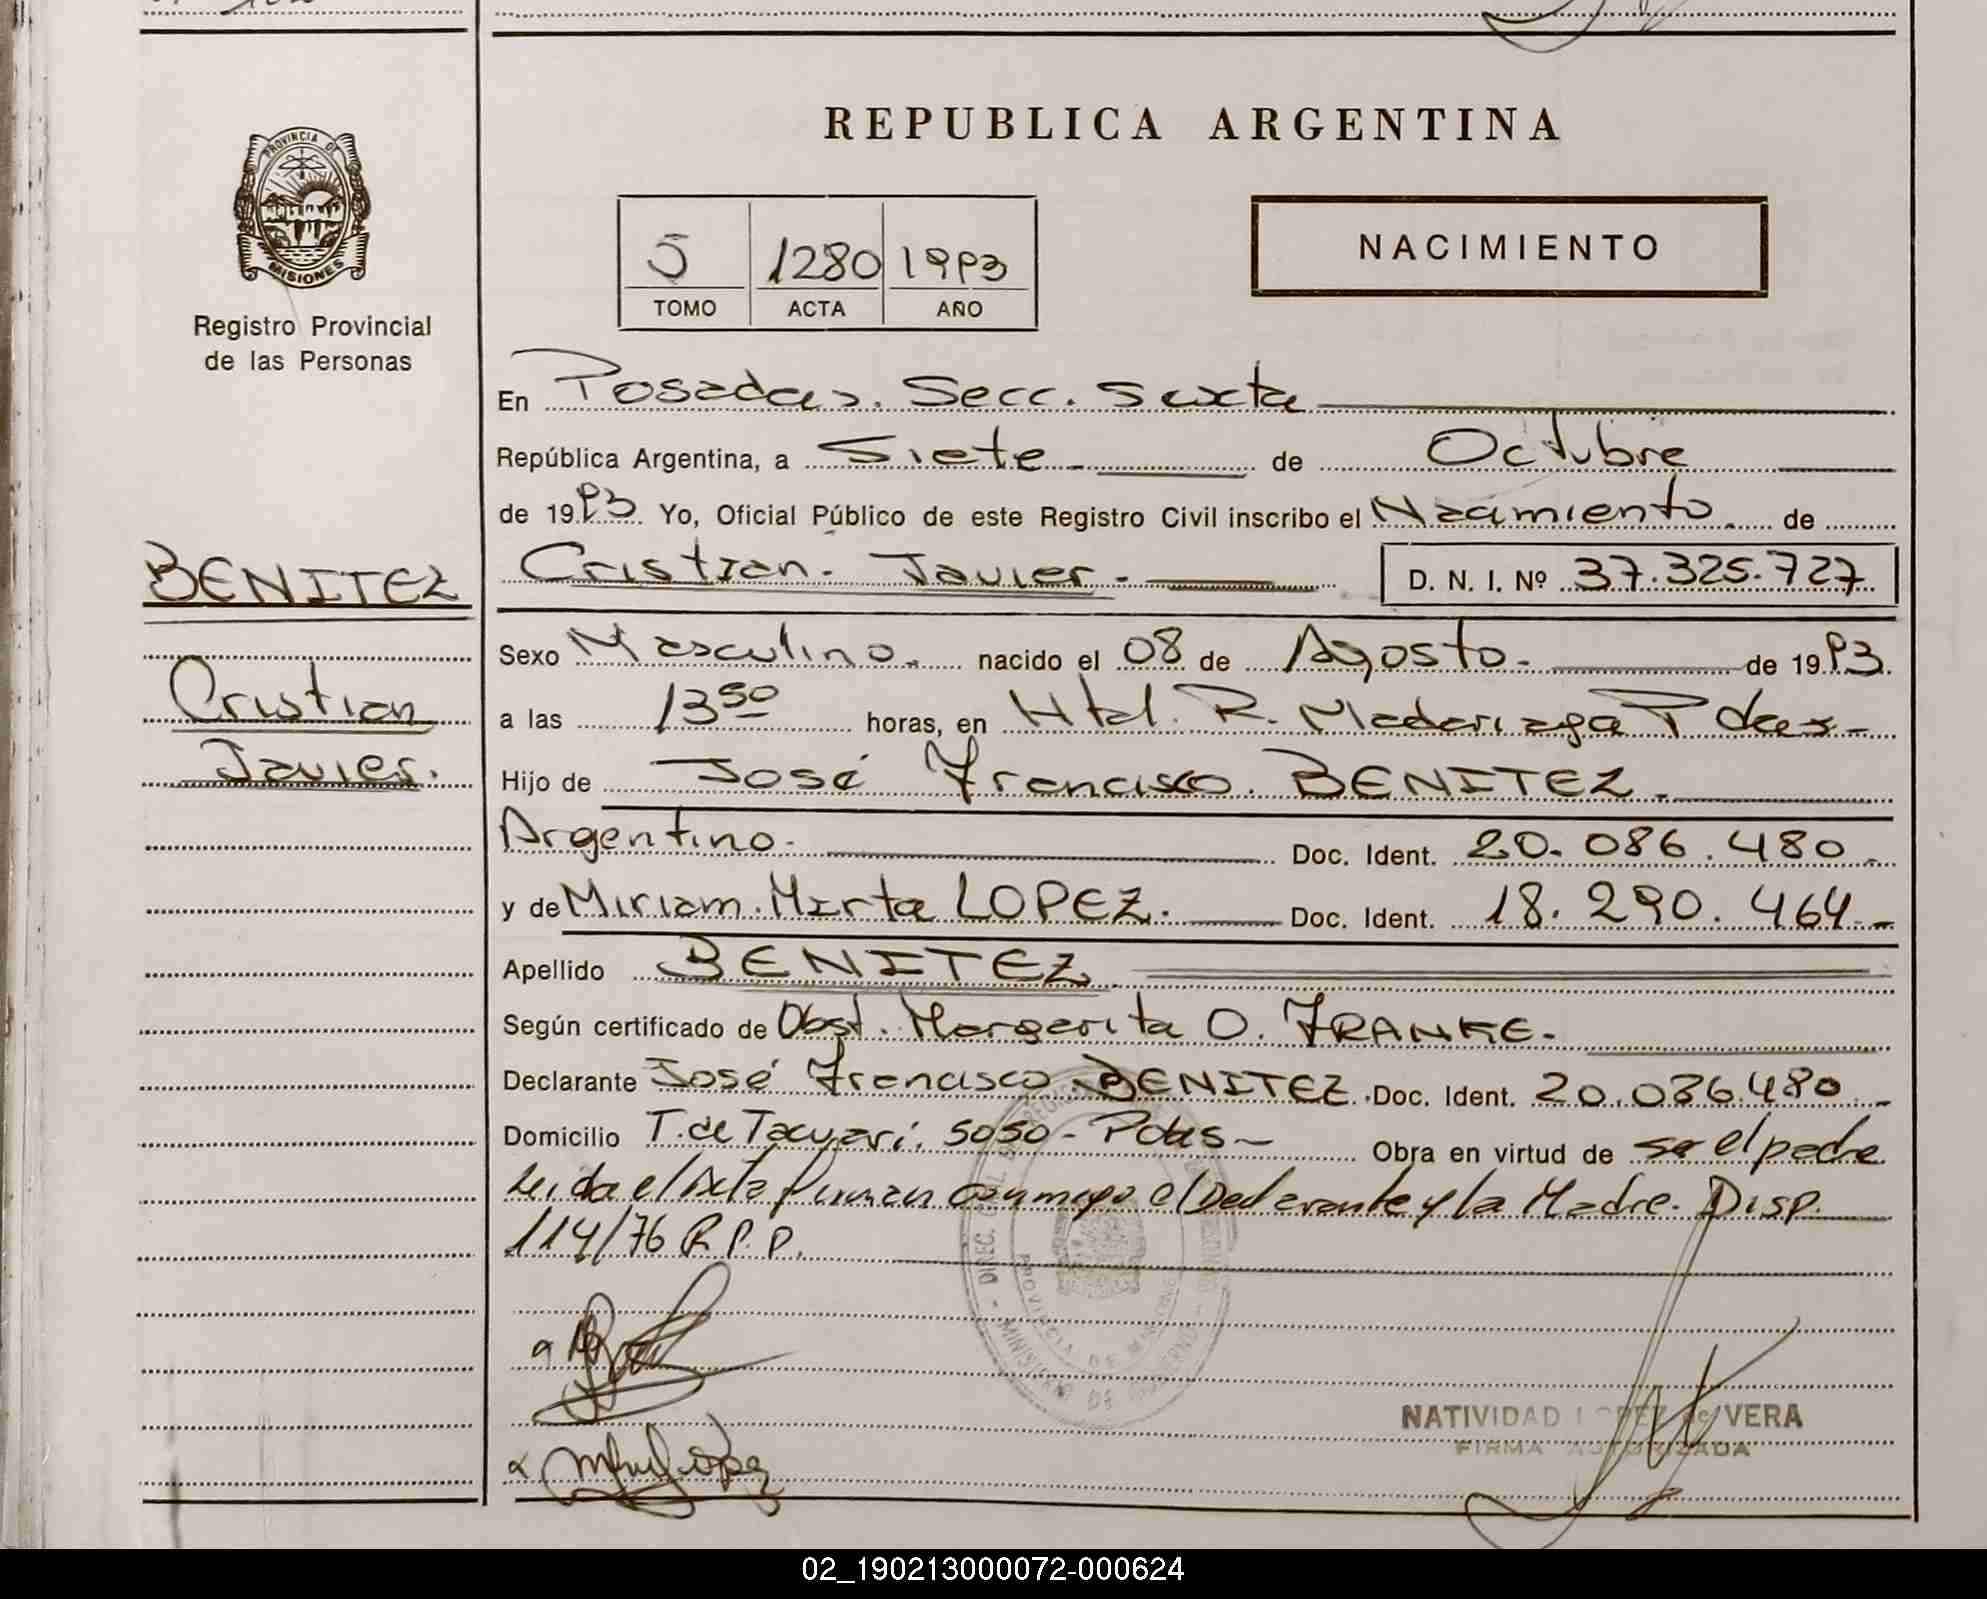 REPUBLICA ARGENTINA
PROVINCIA DE
MISIONES
Registro Provincial
de las Personas
5 1280 1993
TOMO ACTA AÑO
NACIMIENTO
En Posadas. Secc. Sexta
República Argentina, a Siete de Octubre
de 1993. Yo, Oficial Público de este Registro Civil inscribo el Nacimiento. de
BENITEZ
Cristian. Javier. D. N. I. Nº 37.325.727
Sexo Masculino. nacido el 08 de Agosto. de 1993.
Cristian
a las 13 50 horas, en Htal. R. Madariaga Pdas-
Javier.
Hijo de José Francisco. BENITEZ.
Argentino. Doc. Ident. 20.086.480.
y de Miriam. Mirta LOPEZ. Doc. Ident. 18.290.464.-
Apellido BENITEZ
Según certificado de Obst. Margarita O. FRANKE.
Declarante José Francisco BENITEZ. Doc. Ident. 20.086.480.-
Domicilio T. de Tacuari. 5050 - Pdas- Obra en virtud de ser el padre
Leida el Acta firman conmigo el Declarante y la Madre. Disp.
114/76 R.P.P.
DIREC. GRAL.
PROVINCIA DE MISIONES
MINISTERIO DE GOBIERNO
NATIVIDAD LOPEZ de VERA
FIRMA AUTORIZADA
02_190213000072-000624